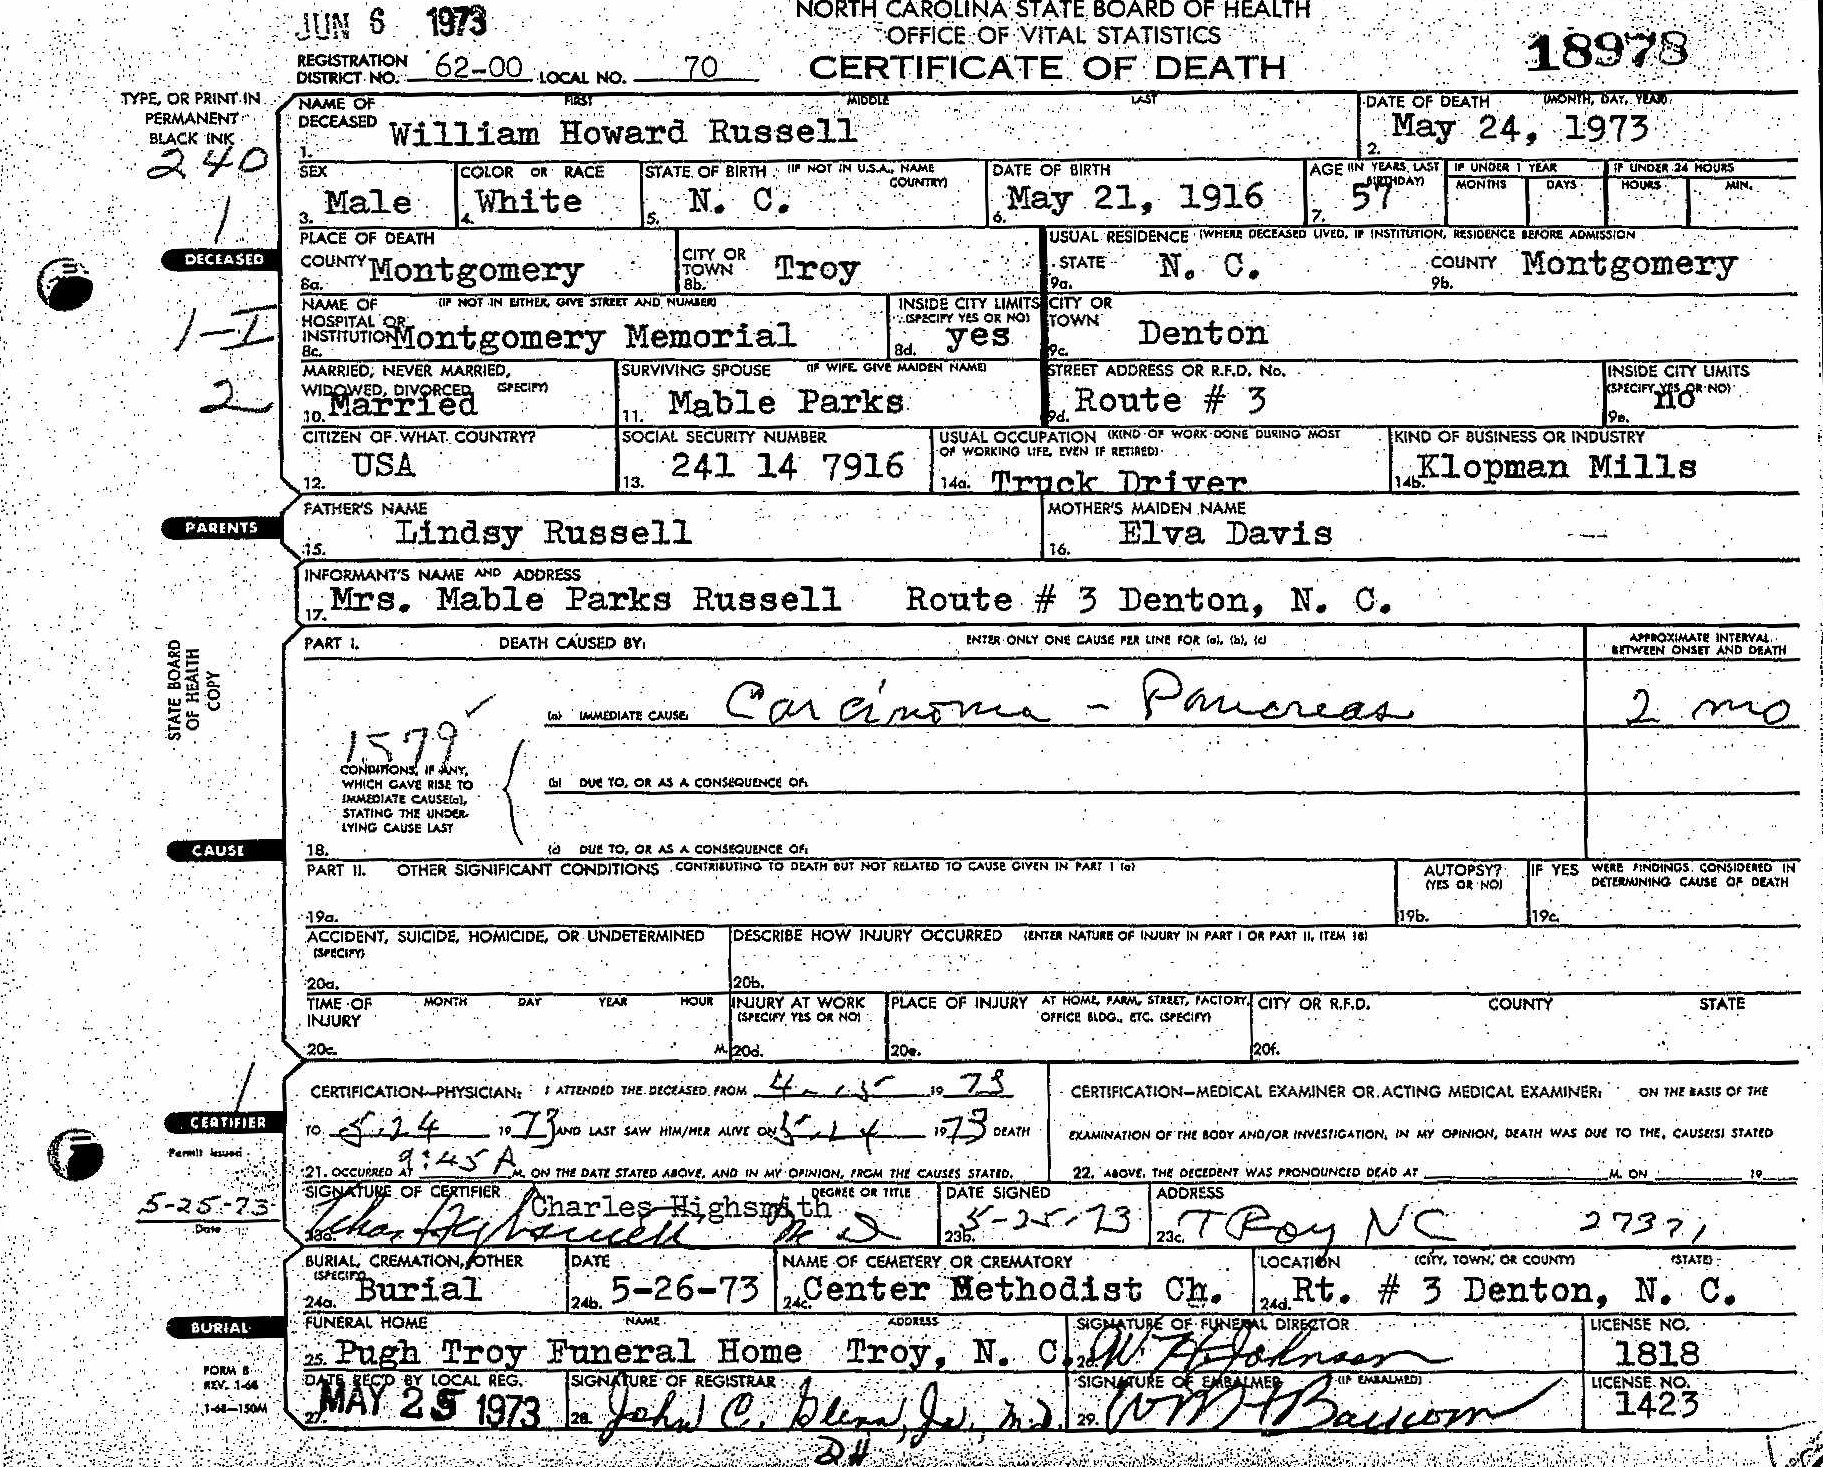 JUN 6 1973
NORTH CAROLINA STATE BOARD OF HEALTH
OFFICE OF VITAL STATISTICS
CERTIFICATE OF DEATH
18978
REGISTRATION DISTRICT NO. 62-00 LOCAL NO. 70
TYPE, OR PRINT IN PERMANENT BLACK INK
240
1
DECEASED
1-I
2
NAME OF DECEASED FIRST MIDDLE LAST
1. William Howard Russell
DATE OF DEATH (MONTH, DAY, YEAR)
2. May 24, 1973
SEX
3. Male
COLOR OR RACE
4. White
STATE OF BIRTH (IF NOT IN U.S.A., NAME COUNTRY)
5. N. C.
DATE OF BIRTH
6. May 21, 1916
AGE (IN YEARS LAST BIRTHDAY)
7. 57
IF UNDER 1 YEAR MONTHS DAYS
IF UNDER 24 HOURS HOURS MIN.
PLACE OF DEATH
COUNTY 8a. Montgomery
CITY OR TOWN 8b. Troy
USUAL RESIDENCE (WHERE DECEASED LIVED, IF INSTITUTION, RESIDENCE BEFORE ADMISSION
STATE 9a. N. C.
COUNTY 9b. Montgomery
NAME OF HOSPITAL OR INSTITUTION (IF NOT IN EITHER, GIVE STREET AND NUMBER)
8c. Montgomery Memorial
INSIDE CITY LIMITS (SPECIFY YES OR NO)
8d. yes
CITY OR TOWN
9c. Denton
MARRIED, NEVER MARRIED, WIDOWED, DIVORCED (SPECIFY)
10. Married
SURVIVING SPOUSE (IF WIFE, GIVE MAIDEN NAME)
11. Mable Parks
STREET ADDRESS OR R.F.D. No.
9d. Route # 3
INSIDE CITY LIMITS (SPECIFY YES OR NO)
9e. no
CITIZEN OF WHAT COUNTRY?
12. USA
SOCIAL SECURITY NUMBER
13. 241 14 7916
USUAL OCCUPATION (KIND OF WORK DONE DURING MOST OF WORKING LIFE, EVEN IF RETIRED)
14a. Truck Driver
KIND OF BUSINESS OR INDUSTRY
14b. Klopman Mills
PARENTS
FATHER'S NAME
15. Lindsy Russell
MOTHER'S MAIDEN NAME
16. Elva Davis
INFORMANT'S NAME AND ADDRESS
17. Mrs. Mable Parks Russell Route # 3 Denton, N. C.
STATE BOARD OF HEALTH COPY
PART I. DEATH CAUSED BY: ENTER ONLY ONE CAUSE PER LINE FOR (a), (b), (c)
APPROXIMATE INTERVAL BETWEEN ONSET AND DEATH
(a) IMMEDIATE CAUSE: Carcinoma - Pancreas 2 mo
1579
CONDITIONS, IF ANY, WHICH GAVE RISE TO IMMEDIATE CAUSE(a), STATING THE UNDERLYING CAUSE LAST
(b) DUE TO, OR AS A CONSEQUENCE OF:
CAUSE
18. (c) DUE TO, OR AS A CONSEQUENCE OF:
PART II. OTHER SIGNIFICANT CONDITIONS CONTRIBUTING TO DEATH BUT NOT RELATED TO CAUSE GIVEN IN PART I (a)
19a.
AUTOPSY? (YES OR NO)
19b.
IF YES WERE FINDINGS CONSIDERED IN DETERMINING CAUSE OF DEATH
19c.
ACCIDENT, SUICIDE, HOMICIDE, OR UNDETERMINED (SPECIFY)
20a.
DESCRIBE HOW INJURY OCCURRED (ENTER NATURE OF INJURY IN PART I OR PART II, ITEM 18)
20b.
TIME OF INJURY MONTH DAY YEAR HOUR
20c. M.
INJURY AT WORK (SPECIFY YES OR NO)
20d.
PLACE OF INJURY AT HOME, FARM, STREET, FACTORY, OFFICE BLDG., ETC. (SPECIFY)
20e.
CITY OR R.F.D. COUNTY STATE
20f.
1
CERTIFIER
CERTIFICATION—PHYSICIAN: I ATTENDED THE DECEASED FROM 4-15 19 73
TO 5-24 19 73 AND LAST SAW HIM/HER ALIVE ON 5-24 19 73 DEATH
21. OCCURRED AT 9:45 A M. ON THE DATE STATED ABOVE, AND IN MY OPINION, FROM THE CAUSES STATED.
CERTIFICATION—MEDICAL EXAMINER OR ACTING MEDICAL EXAMINER: ON THE BASIS OF THE
EXAMINATION OF THE BODY AND/OR INVESTIGATION, IN MY OPINION, DEATH WAS DUE TO THE CAUSE(S) STATED
22. ABOVE. THE DECEDENT WAS PRONOUNCED DEAD AT M. ON 19
Permit Issued
5-25-73
Date
SIGNATURE OF CERTIFIER DEGREE OR TITLE
Charles Highsmith
23a. M D
DATE SIGNED
23b. 5-25-73
ADDRESS
23c. TRoy NC 27371
BURIAL, CREMATION, OTHER (SPECIFY)
24a. Burial
DATE
24b. 5-26-73
NAME OF CEMETERY OR CREMATORY
24c. Center Methodist Ch.
LOCATION (CITY, TOWN, OR COUNTY) (STATE)
24d. Rt. # 3 Denton, N. C.
BURIAL
FUNERAL HOME NAME ADDRESS
25. Pugh Troy Funeral Home Troy, N. C.
SIGNATURE OF FUNERAL DIRECTOR
26. W H Johnson
LICENSE NO.
1818
FORM 8
REV. 1-68
1-68-150M
DATE REC'D BY LOCAL REG.
27. MAY 25 1973
SIGNATURE OF REGISTRAR
28. John C. Glenn, Jr., M.D.
DH
SIGNATURE OF EMBALMER (IF EMBALMED)
29.
LICENSE NO.
1423